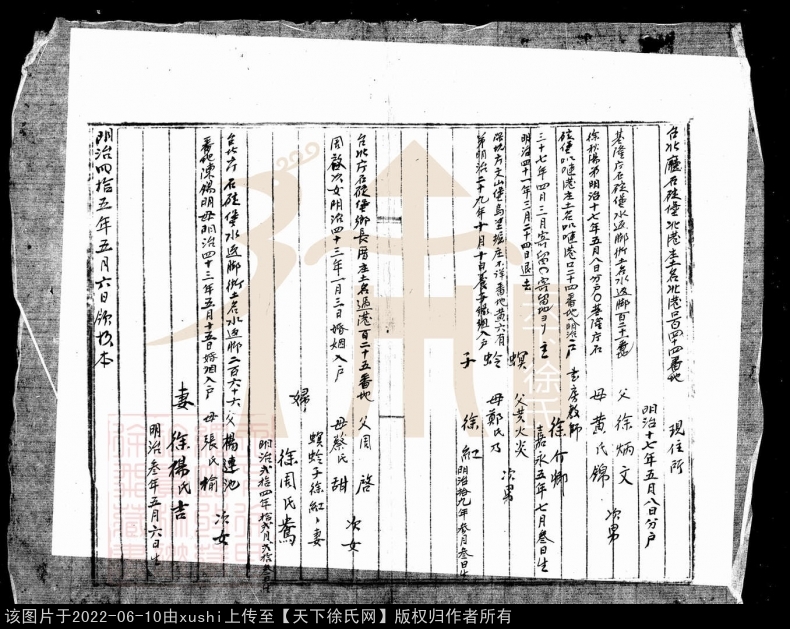 台北廳石碇堡北港庄土名北港口百四十四番地
現住所
明治十七年五月八日分戶
基隆庁石碇堡水返脚街土名水返脚百二十一番
徐秋陽弟明治十七年五月八日分户〇基隆庁石
碇堡叭嗹港庄土名叭嗹港口二十四番地へ明治
三十七年四月三月寄留〇寄留地ヨリ
明治四十一年三月二十四日退去
父 徐炳文
母 黄氏錦
次男
戶主
書房教師
徐介卿
嘉永五年七月叁日生
深坑庁文山堡烏塗窟庄不詳番地黄六有
弟明治二十九年十月十日養子緣組入户
螟蛉子
父 黄火炎
母 鄭氏乃
次男
徐紅
明治拾九年叁月叁日生
台北庁石碇堡鄉長厝庄土名過港百二十五番地
周啟次女明治四十三年一月三日婚姻入户
父 周啓
母 蔡氏甜
次女
婦
螟蛉子徐紅、妻
徐周氏鴦
台北庁石碇堡水返脚街土名水返脚二百六十六
番地陳錦明母明治四十三年五月十五日婚姻入户
父 楊連池
母 張氏榆
次女
妻
徐楊氏吉
明治叁年五月六日生
明治四拾五年五月六日領抄本
该图片于2022-06-10由xushi上传至【天下徐氏网】版权归作者所有